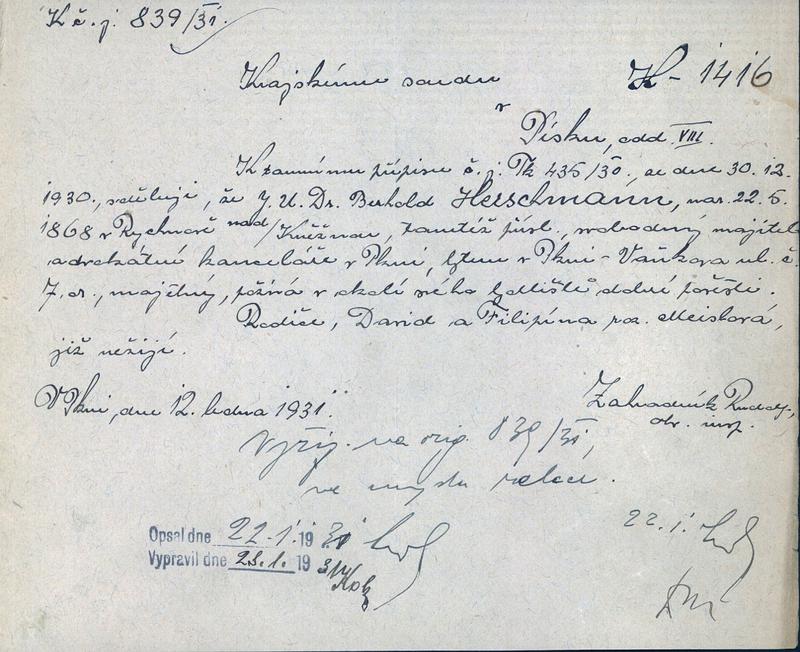 K č. j. 839/31.
H - 1416
Krajskému soudu
v
Písku, odd. VIII.
K tamnímu přípisu č. j. Tk 435/30, ze dne 30.12.
1930., sděluji, že J. U. Dr. Berthold Herschmann, nar. 22.5.
1868 v Rychnově nad/Kněžnou, tamtéž přísl., svobodný, majitel
advokátní kanceláře v Plzni, bytem v Plzni - Vaňkova ul. č.
7. or., majetný, požívá v okolí svého bydliště dobré pověsti.
Rodiče, David a Filipína roz. Meislová,
již nežijí.
V Plzni, dne 12. ledna 1931.
Zahradník Rudolf,
Vyříz. na orig. 839/31,
ve smyslu relace.
Opsal dne 22.1. 1931
22. 1.
Vypravil dne 23.1. 1931